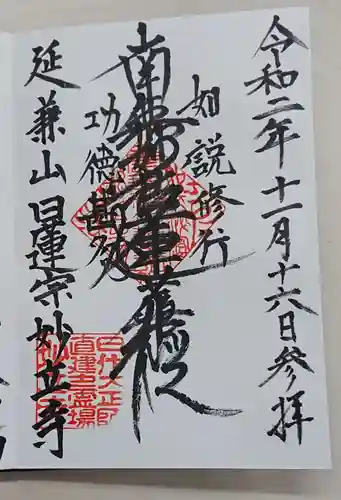 令和二年十一月十六日参拝
如説修行
南無妙法蓮華経
功徳甚多
延兼山日蓮宗妙立寺